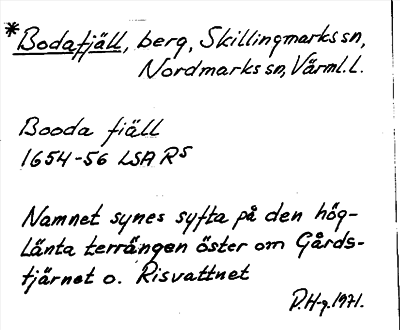 *Bodafjäll, berg, Skillingmarks sn,
Nordmarks sn, Värml. L.
Booda fiäll
1654-56 LSA R5
Namnet synes syfta på den hög-
länta terrängen öster om Gårds-
tjärnet o. Risvattnet
P.H-g. 1971.